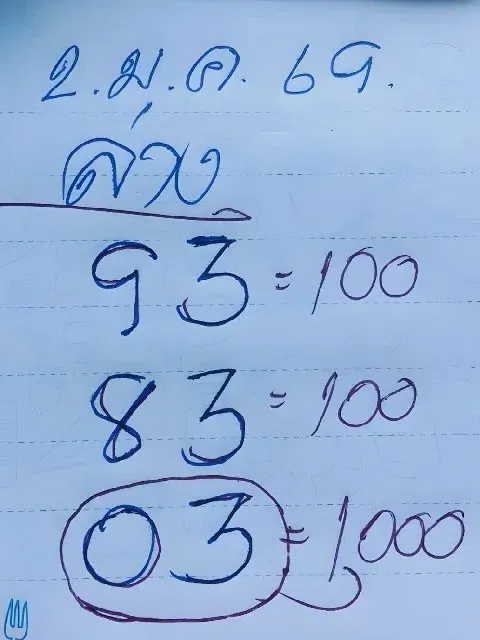 2.ม.ค. 69.
ล่าง
93 = 100
83 = 100
03 = 1,000